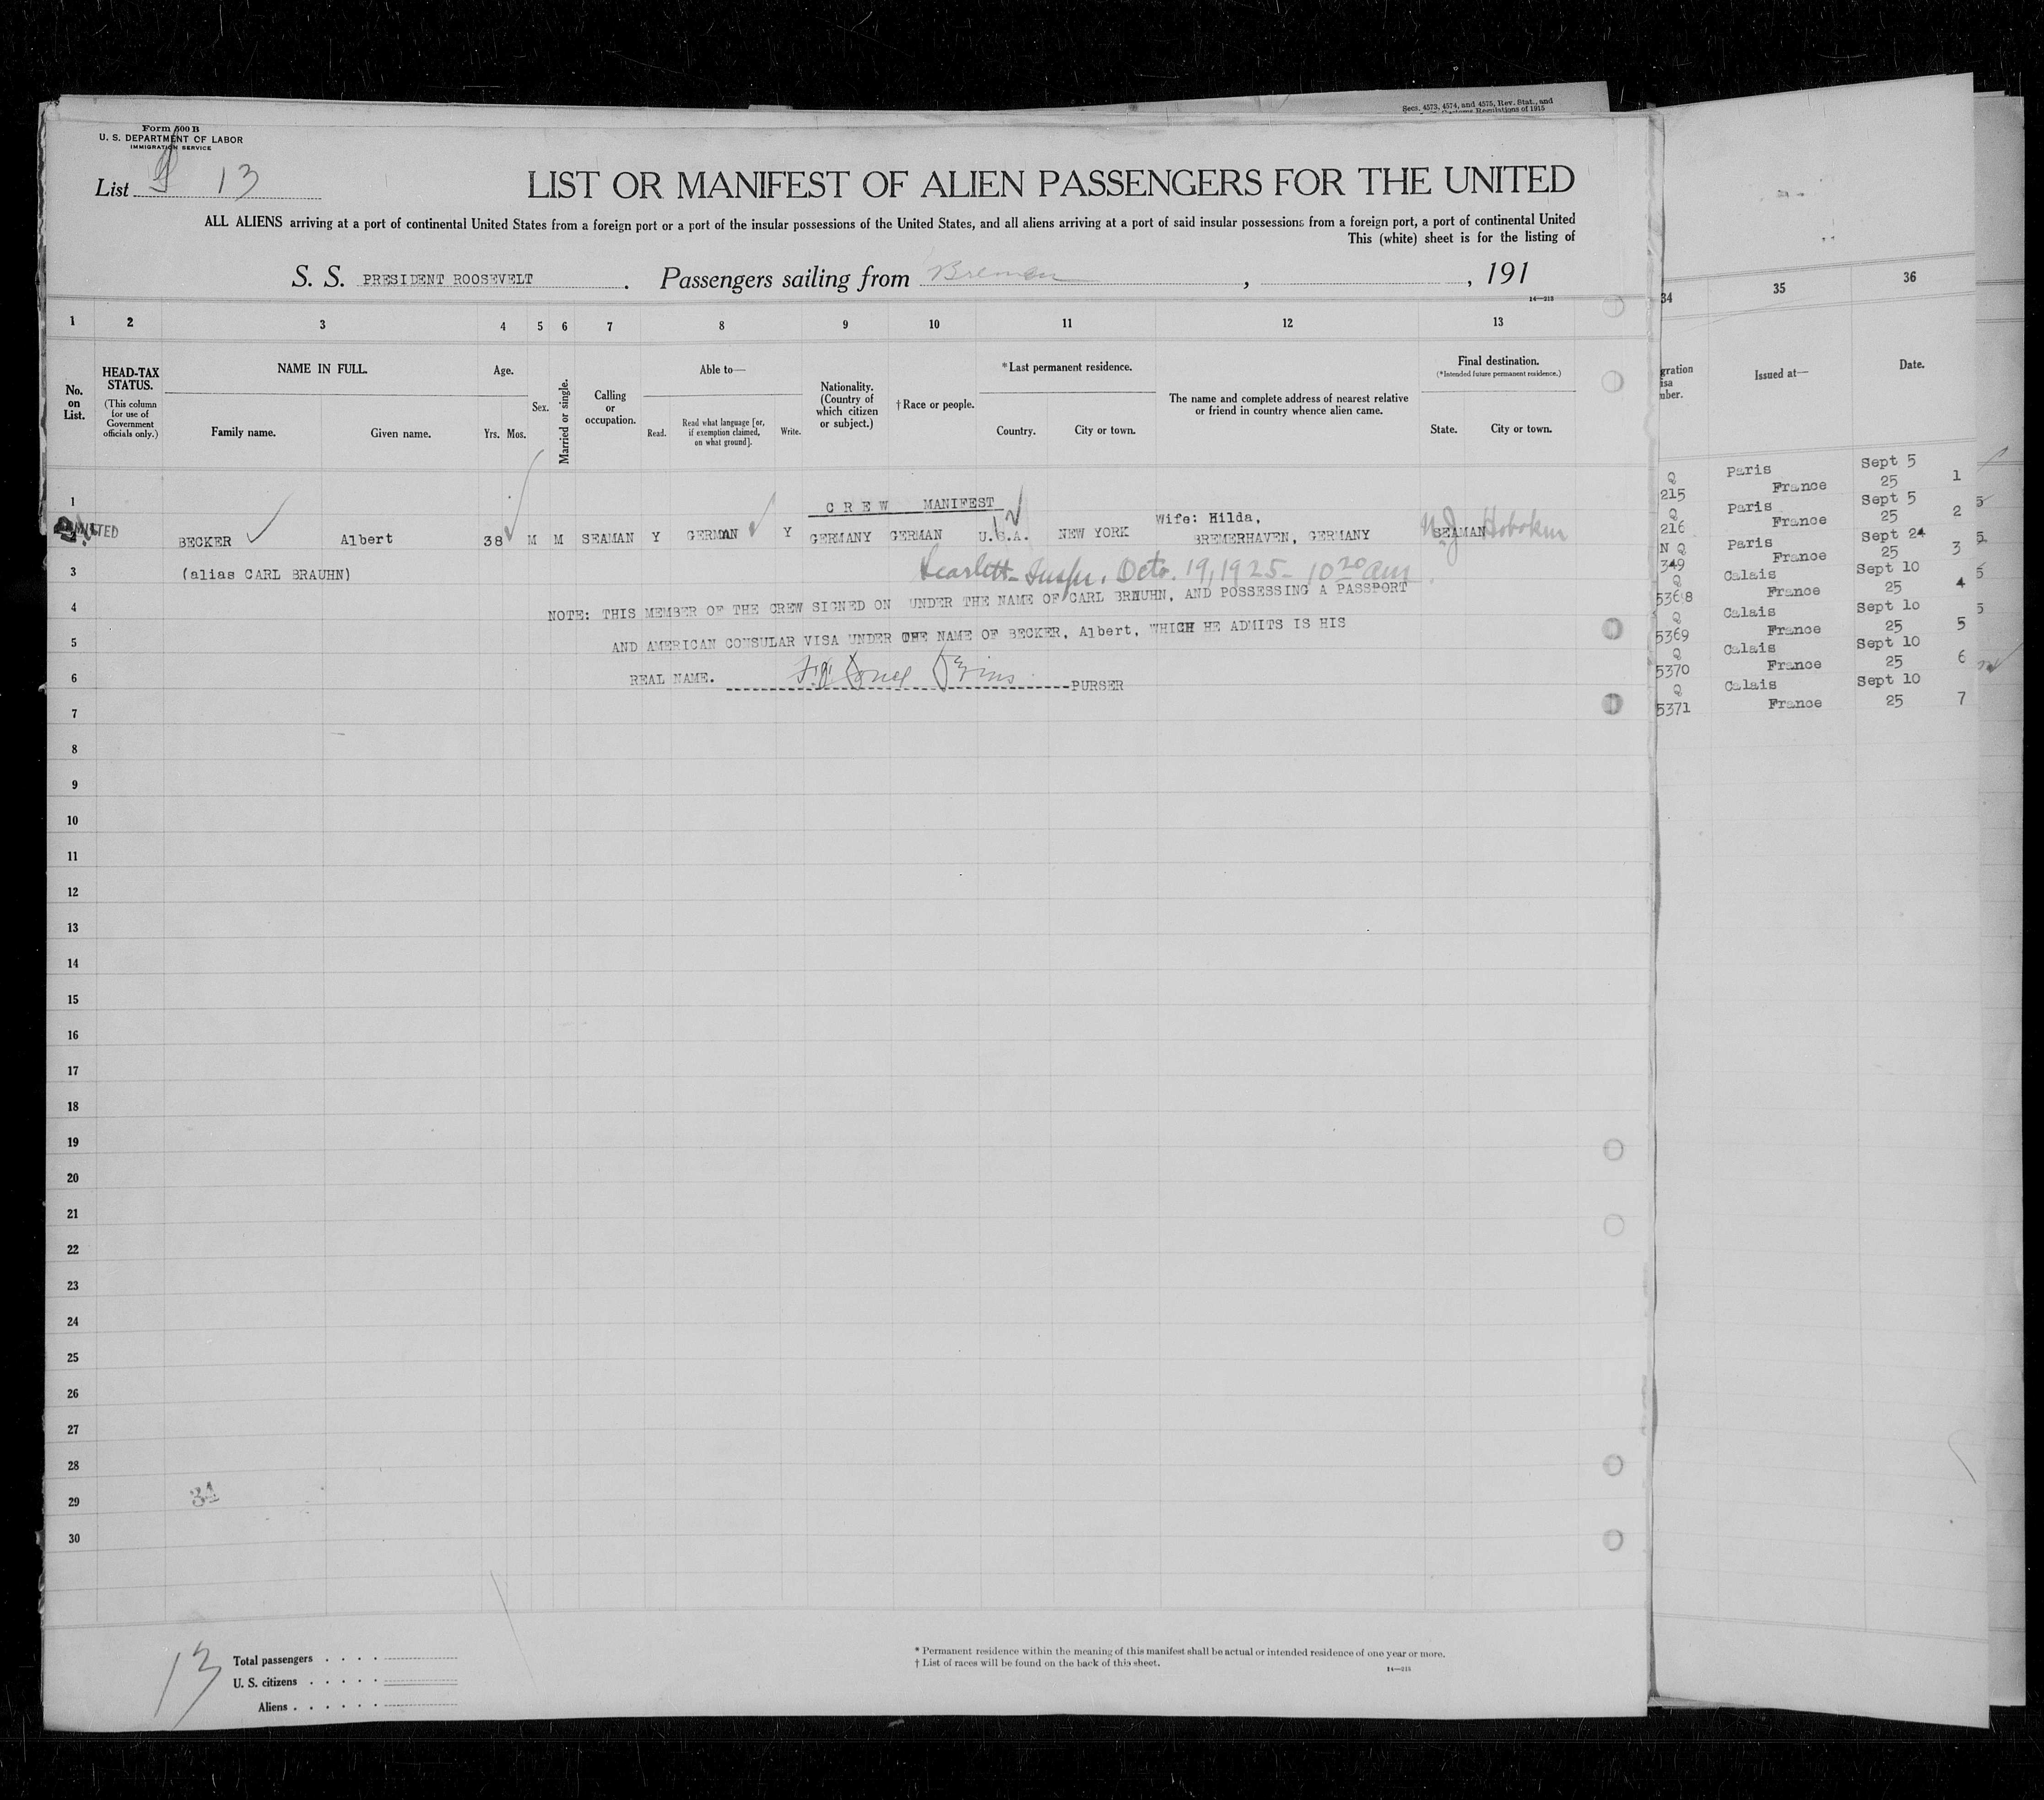 Secs. 4573, 4574, and 4575, Rev. Stat., and
Customs Regulations of 1915
Form 500 B
U. S. DEPARTMENT OF LABOR
IMMIGRATION SERVICE
List 13
LIST OR MANIFEST OF ALIEN PASSENGERS FOR THE UNITED
ALL ALIENS arriving at a port of continental United States from a foreign port or a port of the insular possessions of the United States, and all aliens arriving at a port of said insular possessions from a foreign port, a port of continental United
This (white) sheet is for the listing of
S. S. PRESIDENT ROOSEVELT . Passengers sailing from Bremen , , 191
14—213
1 2 3 4 5 6 7 8 9 10 11 12 13
No. on List.
HEAD-TAX STATUS.
(This column for use of Government officials only.)
NAME IN FULL.
Family name. Given name.
Age.
Yrs. Mos.
Sex.
Married or single.
Calling or occupation.
Able to—
Read. Read what language [or, if exemption claimed, on what ground]. Write.
Nationality. (Country of which citizen or subject.)
†Race or people.
*Last permanent residence.
Country. City or town.
The name and complete address of nearest relative or friend in country whence alien came.
Final destination.
(*Intended future permanent residence.)
State. City or town.
1 CREW MANIFEST
Wife: Hilda,
BECKER Albert 38 M M SEAMAN Y GERMAN Y GERMANY GERMAN U.S.A. NEW YORK BREMERHAVEN, GERMANY SEAMAN N.J. Hoboken
3 (alias CARL BRAUHN) Scarlett- Inspr. Octo. 19, 1925- 10 20 am.
4 NOTE: THIS MEMBER OF THE CREW SIGNED ON UNDER THE NAME OF CARL BRAUHN, AND POSSESSING A PASSPORT
5 AND AMERICAN CONSULAR VISA UNDER THE NAME OF BECKER, Albert, WHICH HE ADMITS IS HIS
6 REAL NAME. PURSER
7
8
9
10
11
12
13
14
15
16
17
18
19
20
21
22
23
24
25
26
27
28
29
30
34
13
Total passengers
U. S. citizens
Aliens
* Permanent residence within the meaning of this manifest shall be actual or intended residence of one year or more.
† List of races will be found on the back of this sheet.
14—213
34 35 36
gration
isa
mber.
Issued at—
Date.
Q 215 Paris France Sept 5 25 1
Q 216 Paris France Sept 5 25 2
N Q 349 Paris France Sept 24 25 3
Q 5368 Calais France Sept 10 25 4
Q 5369 Calais France Sept 10 25 5
Q 5370 Calais France Sept 10 25 6
Q 5371 Calais France Sept 10 25 7